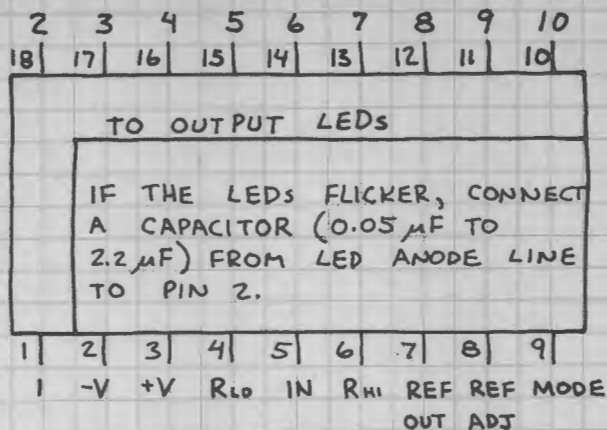 2 3 4 5 6 7 8 9 10
18 17 16 15 14 13 12 11 10
TO OUTPUT LEDs
IF THE LEDs FLICKER, CONNECT
A CAPACITOR (0.05 µF TO
2.2 µF) FROM LED ANODE LINE
TO PIN 2.
1 2 3 4 5 6 7 8 9
1 -V +V RLO IN RHI REF REF MODE
OUT ADJ